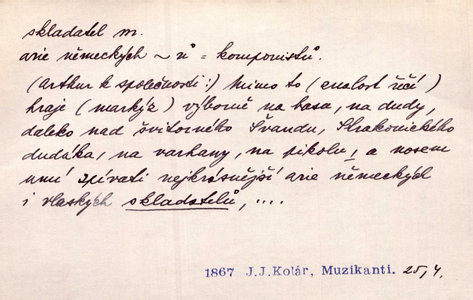 skladatel m.
arie německých ~ ů = komponistů.
(Arthur k společnosti:) Mimo to (znalost řečí)
hraje (markýz) výborně na basu, na dudy,
daleko nad švitorného Švandu, Strakonického
dudáka, na varhany, na pikolu, a nosem
umí zpívati nejkrásnější arie německých
i vlaských skladatelů, ....
1867 J.J.Kolár, Muzikanti. 25, 4.